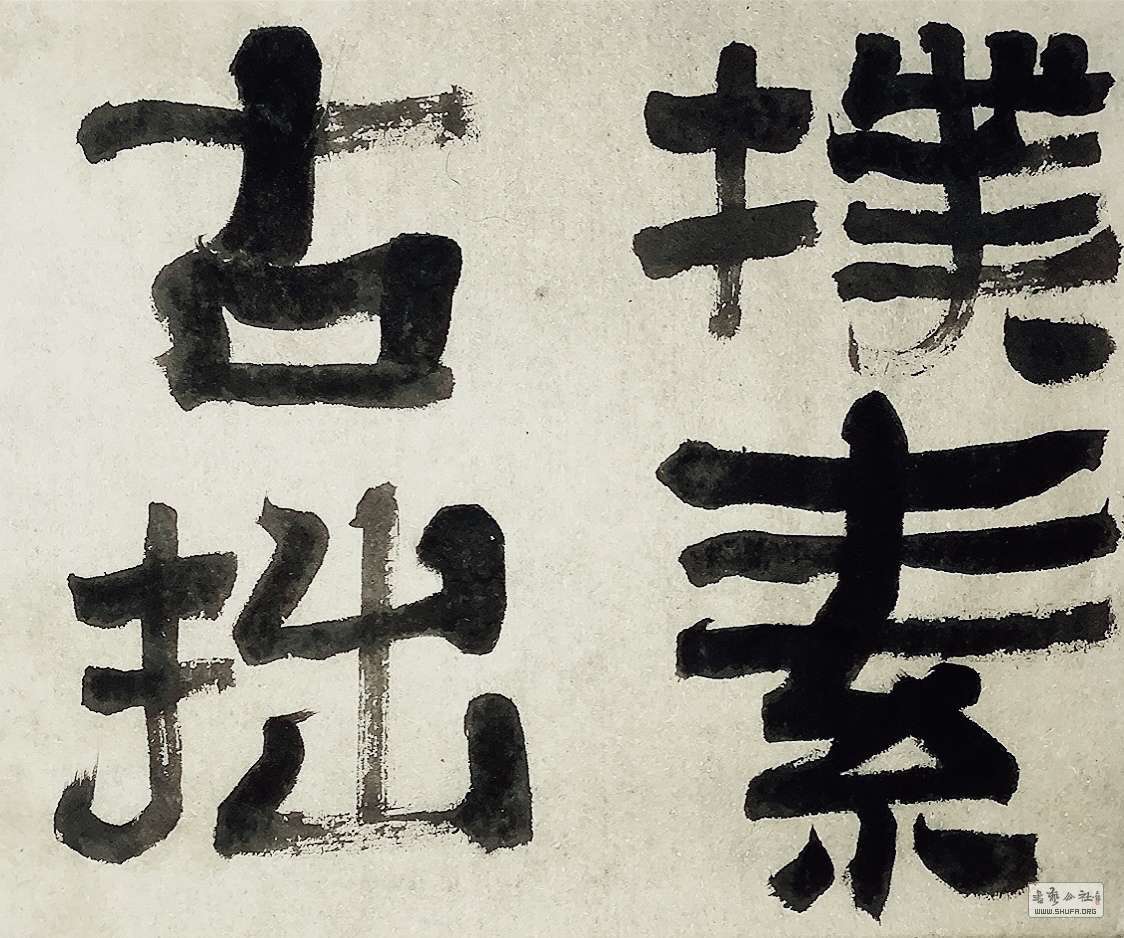 撲素
古拙
書藝公社
WWW.SHUFA.ORG